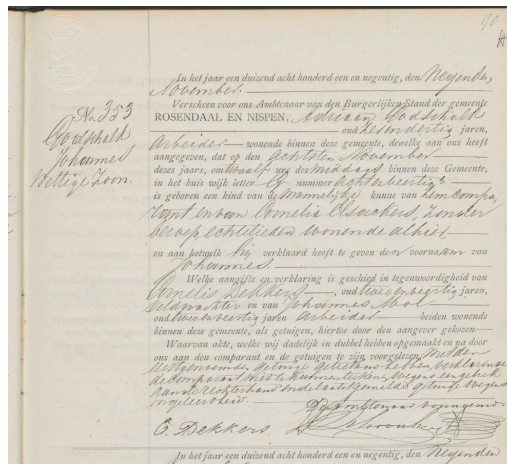 90
No. 353
Godschalk
Johannes
Wettige Zoon.
In het jaar een duizend acht honderd een en negentig, den Negenden
November.
Verscheen voor ons Ambtenaar van den Burgerlijken Stand der gemeente
ROSENDAAL EN NISPEN, Adriaan Godschalk
oud zesendertig jaren,
Arbeider wonende binnen deze gemeente, dewelke aan ons heeft
aangegeven, dat op den achtsten November
dezes jaars, om twaalf ure des middags binnen deze Gemeente,
in het huis wijk letter nummer achtenveertig
is geboren een kind van de mannelijke kunne van hem compa,
rant en van Cornelia Claackers, zonder
beroep, echtelieden wonende alhier
en aan hetwelk hij verklaard heeft te geven den voornaam van
Johannes.
Welke aangifte en verklaring is geschied in tegenwoordigheid van
Cornelis Dekkers oud tweeenveertig jaren,
veldwachter en van Johannes Mol
oud tweeenveertig jaren Arbeider beiden wonende
binnen deze gemeente, als getuigen, hiertoe door den aangever gekozen
Waarvan akte, welke wij dadelijk in dubbel hebben opgemaakt en na door
ons aan den comparant en de getuigen te zijn voorgelezen, met den
eerstgenoemden getuige geteekend hebben, verklarende
de comparant niet te kunnen teekenen wegens een gebrek
aan de rechterhand en de laatstgemelde getuige wegens
ongeleerdheid.
De Ambtenaar voorgenoemd
C. Dekkers.
In het jaar een duizend acht honderd een en negentig, den Negenden